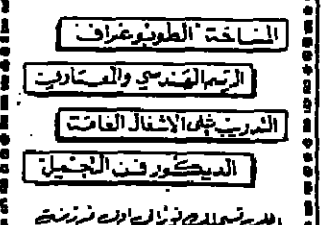 المساحة الطوبوغراف
الرسم الهندسي والمعماري
التدريب على الاشغال العامة
الديكور فن التجميل